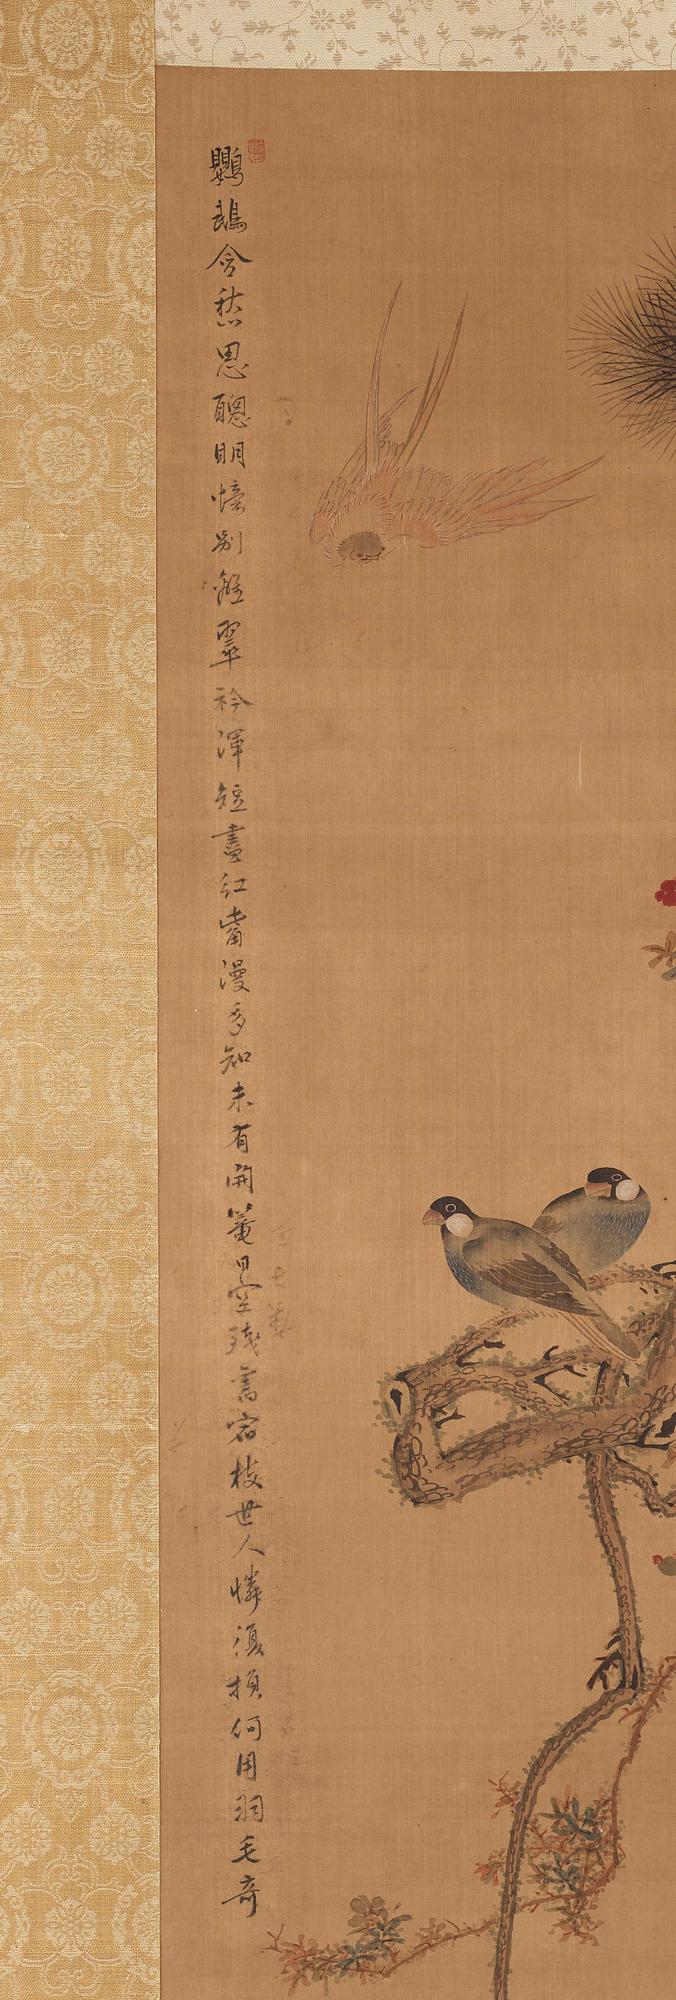 鸚鵡含愁思聰明憶別離翠衿渾短盡紅觜漫多知未有開籠日空殘舊宿枝世人憐復損何用羽毛奇